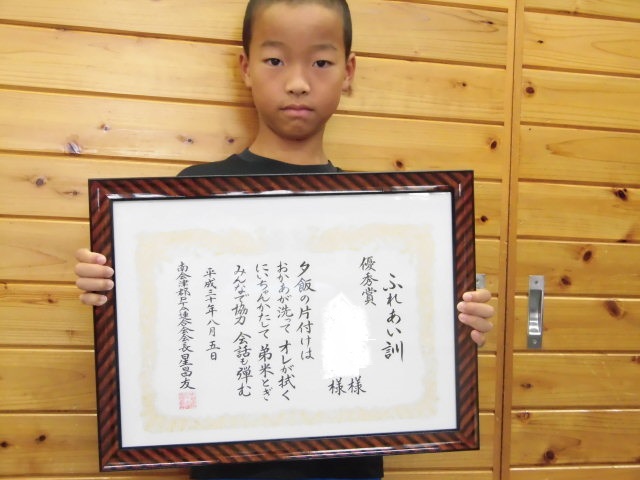 ふれあい訓
優秀賞
様
様
夕飯の片付けは
おかあが洗って オレが拭く
にいちゃんかたして 弟米とぎ
みんなで協力 会話も弾む
平成三十年八月五日
南会津郡PTA連合会会長 星昌友